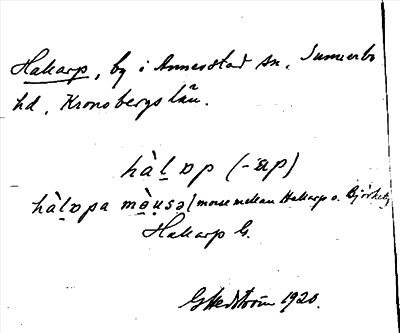 Hakarp, by i Annerstad sn, Sunnerbo
hd, Kronobergs län.
hàl̠ɒp (-ᴂp)
hàl̠ɒpa mò̠u̠sə (mosse mellan Hakarp o.
Hakarp G.
GHedström 1920.